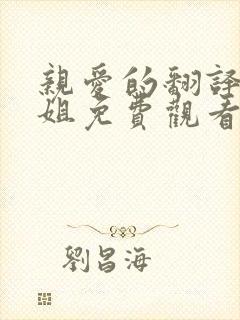 親愛的翻譯
姐免費觀看
劉昌海